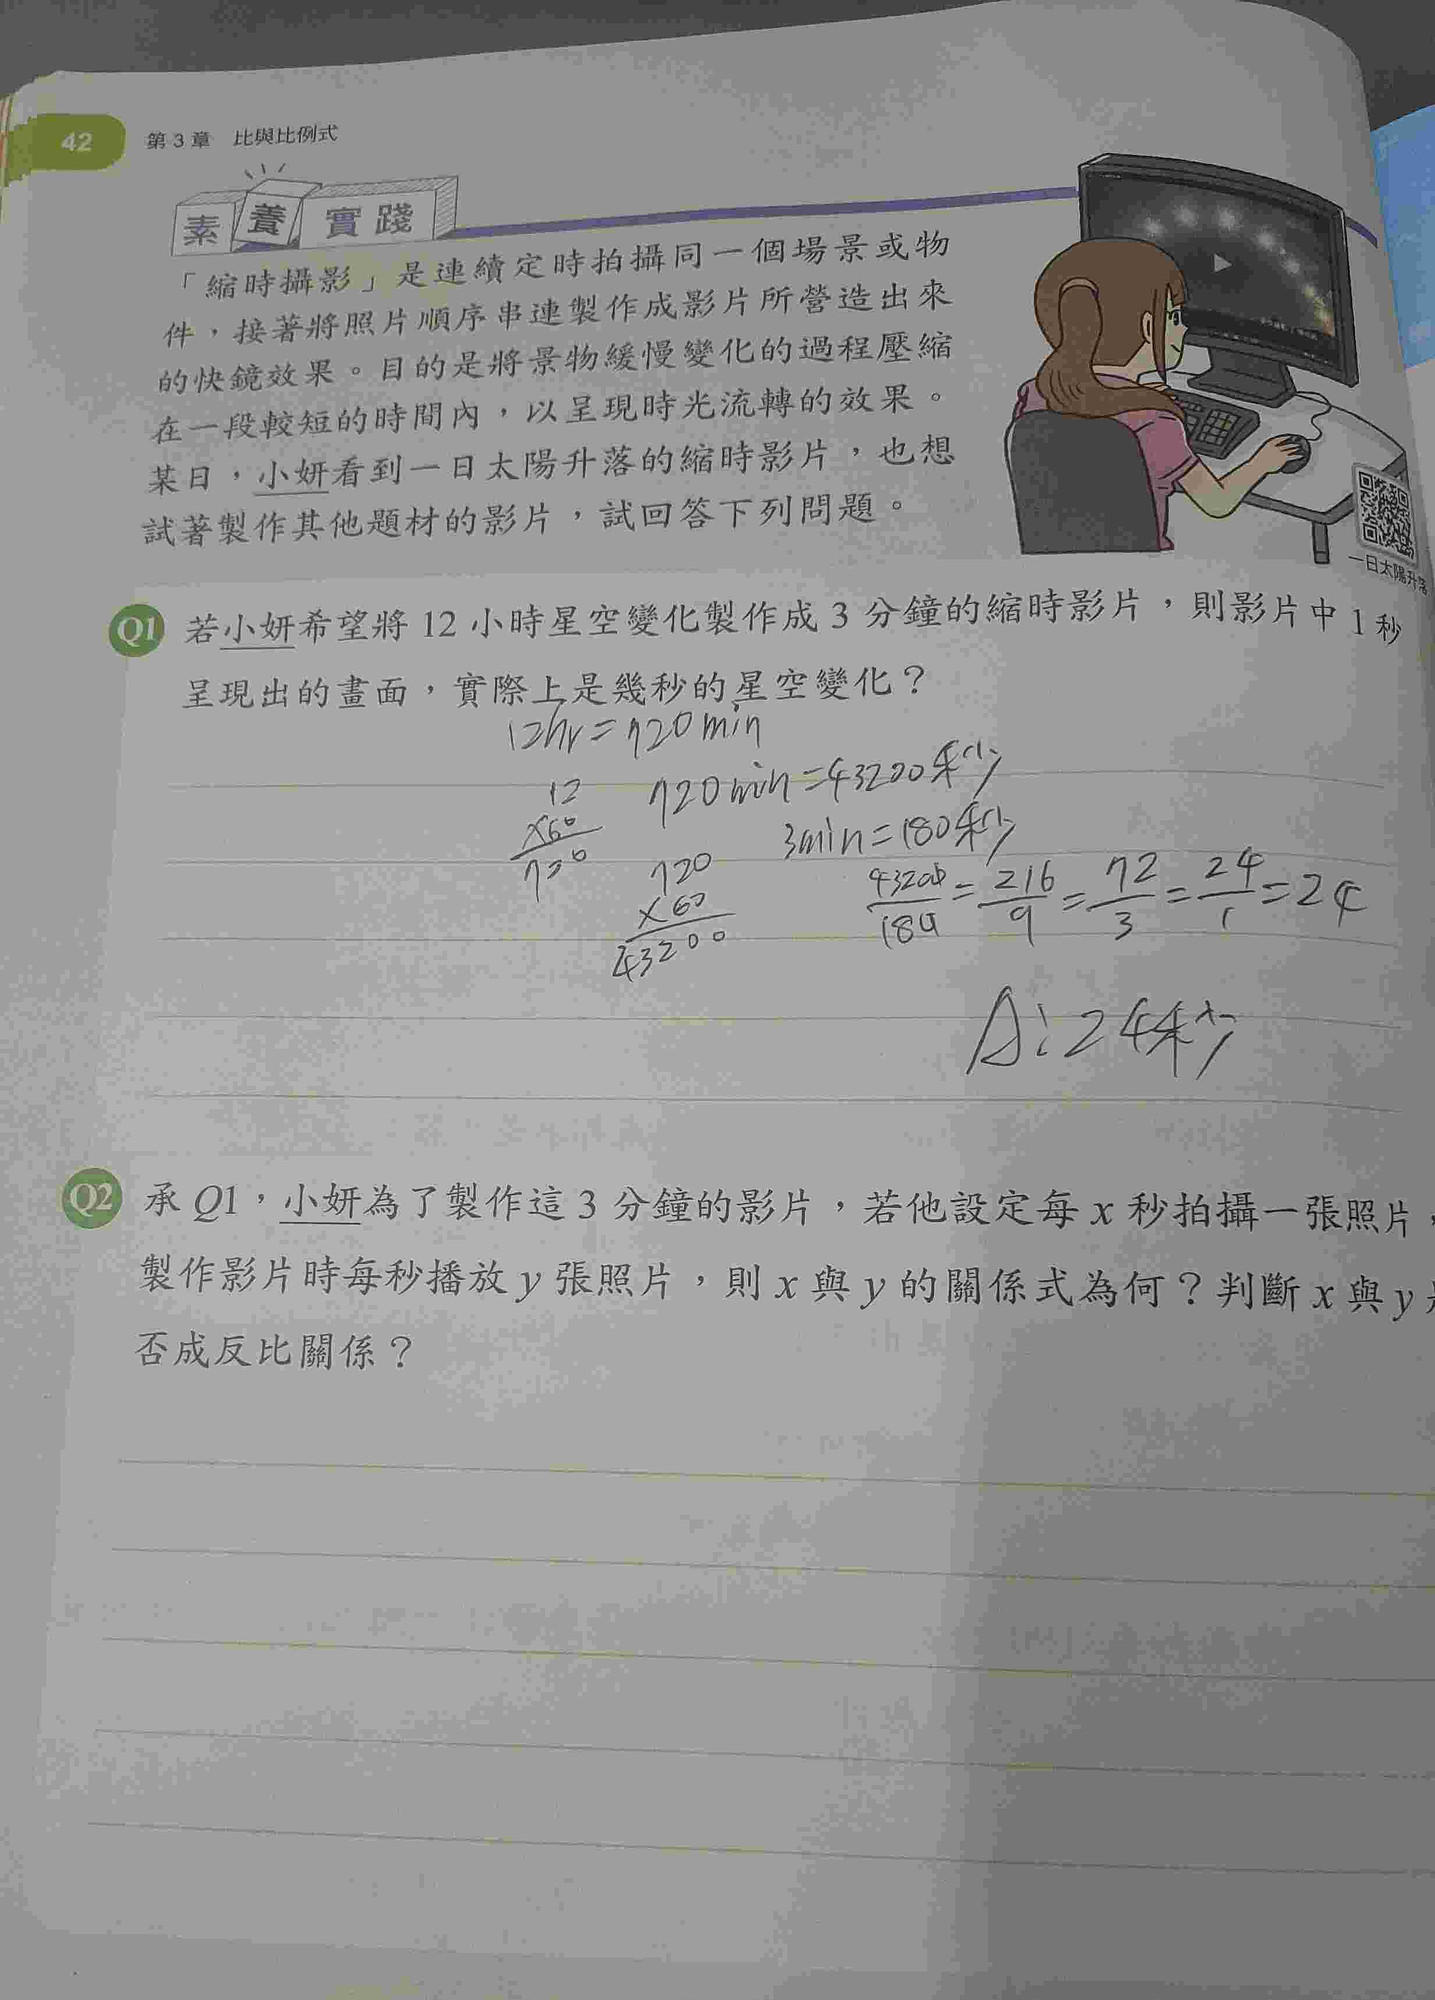 42
第3章 比與比例式
素養實踐
「縮時攝影」是連續定時拍攝同一個場景或物
件，接著將照片順序串連製作成影片所營造出來
的快鏡效果。目的是將景物緩慢變化的過程壓縮
在一段較短的時間內，以呈現時光流轉的效果。
某日，小妍看到一日太陽升落的縮時影片，也想
試著製作其他題材的影片，試回答下列問題。
一日太陽升落
Q1 若小妍希望將 12 小時星空變化製作成 3 分鐘的縮時影片，則影片中 1 秒
呈現出的畫面，實際上是幾秒的星空變化？
12hr=720min
720min=43200秒
12
×60
720
3min=180秒
720
×60
43200
43200/180=216/9=72/3=24/1=24
A:24秒
Q2 承 Q1，小妍為了製作這 3 分鐘的影片，若他設定每 x 秒拍攝一張照片，
製作影片時每秒播放 y 張照片，則 x 與 y 的關係式為何？判斷 x 與 y
否成反比關係？